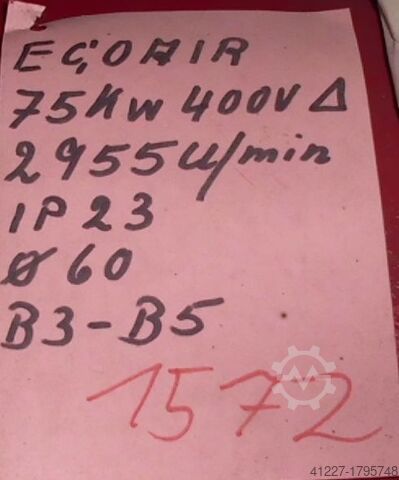 ECOAIR
75Kw 400V Δ
2955U/min
IP 23
Ø 60
B3-B5
1572
41227-1795748